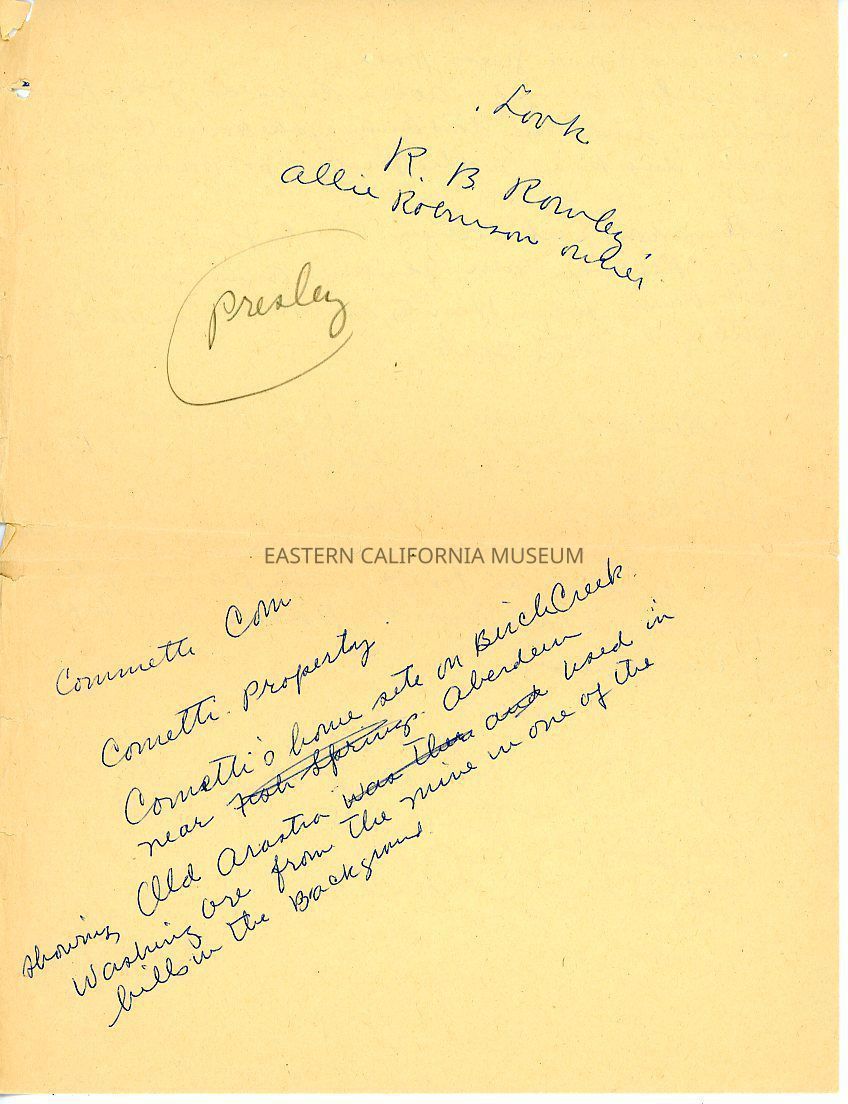 Look
R. B. Rowley
Allie Robinson owner
Presley
EASTERN CALIFORNIA MUSEUM
Commetti Com
Cometti Property
Cometti's home site on Birch Creek
near Fish Springs Aberdeen
showing Old Arastra was then and used in
Washing ore from the mine in one of the
hills in the Background